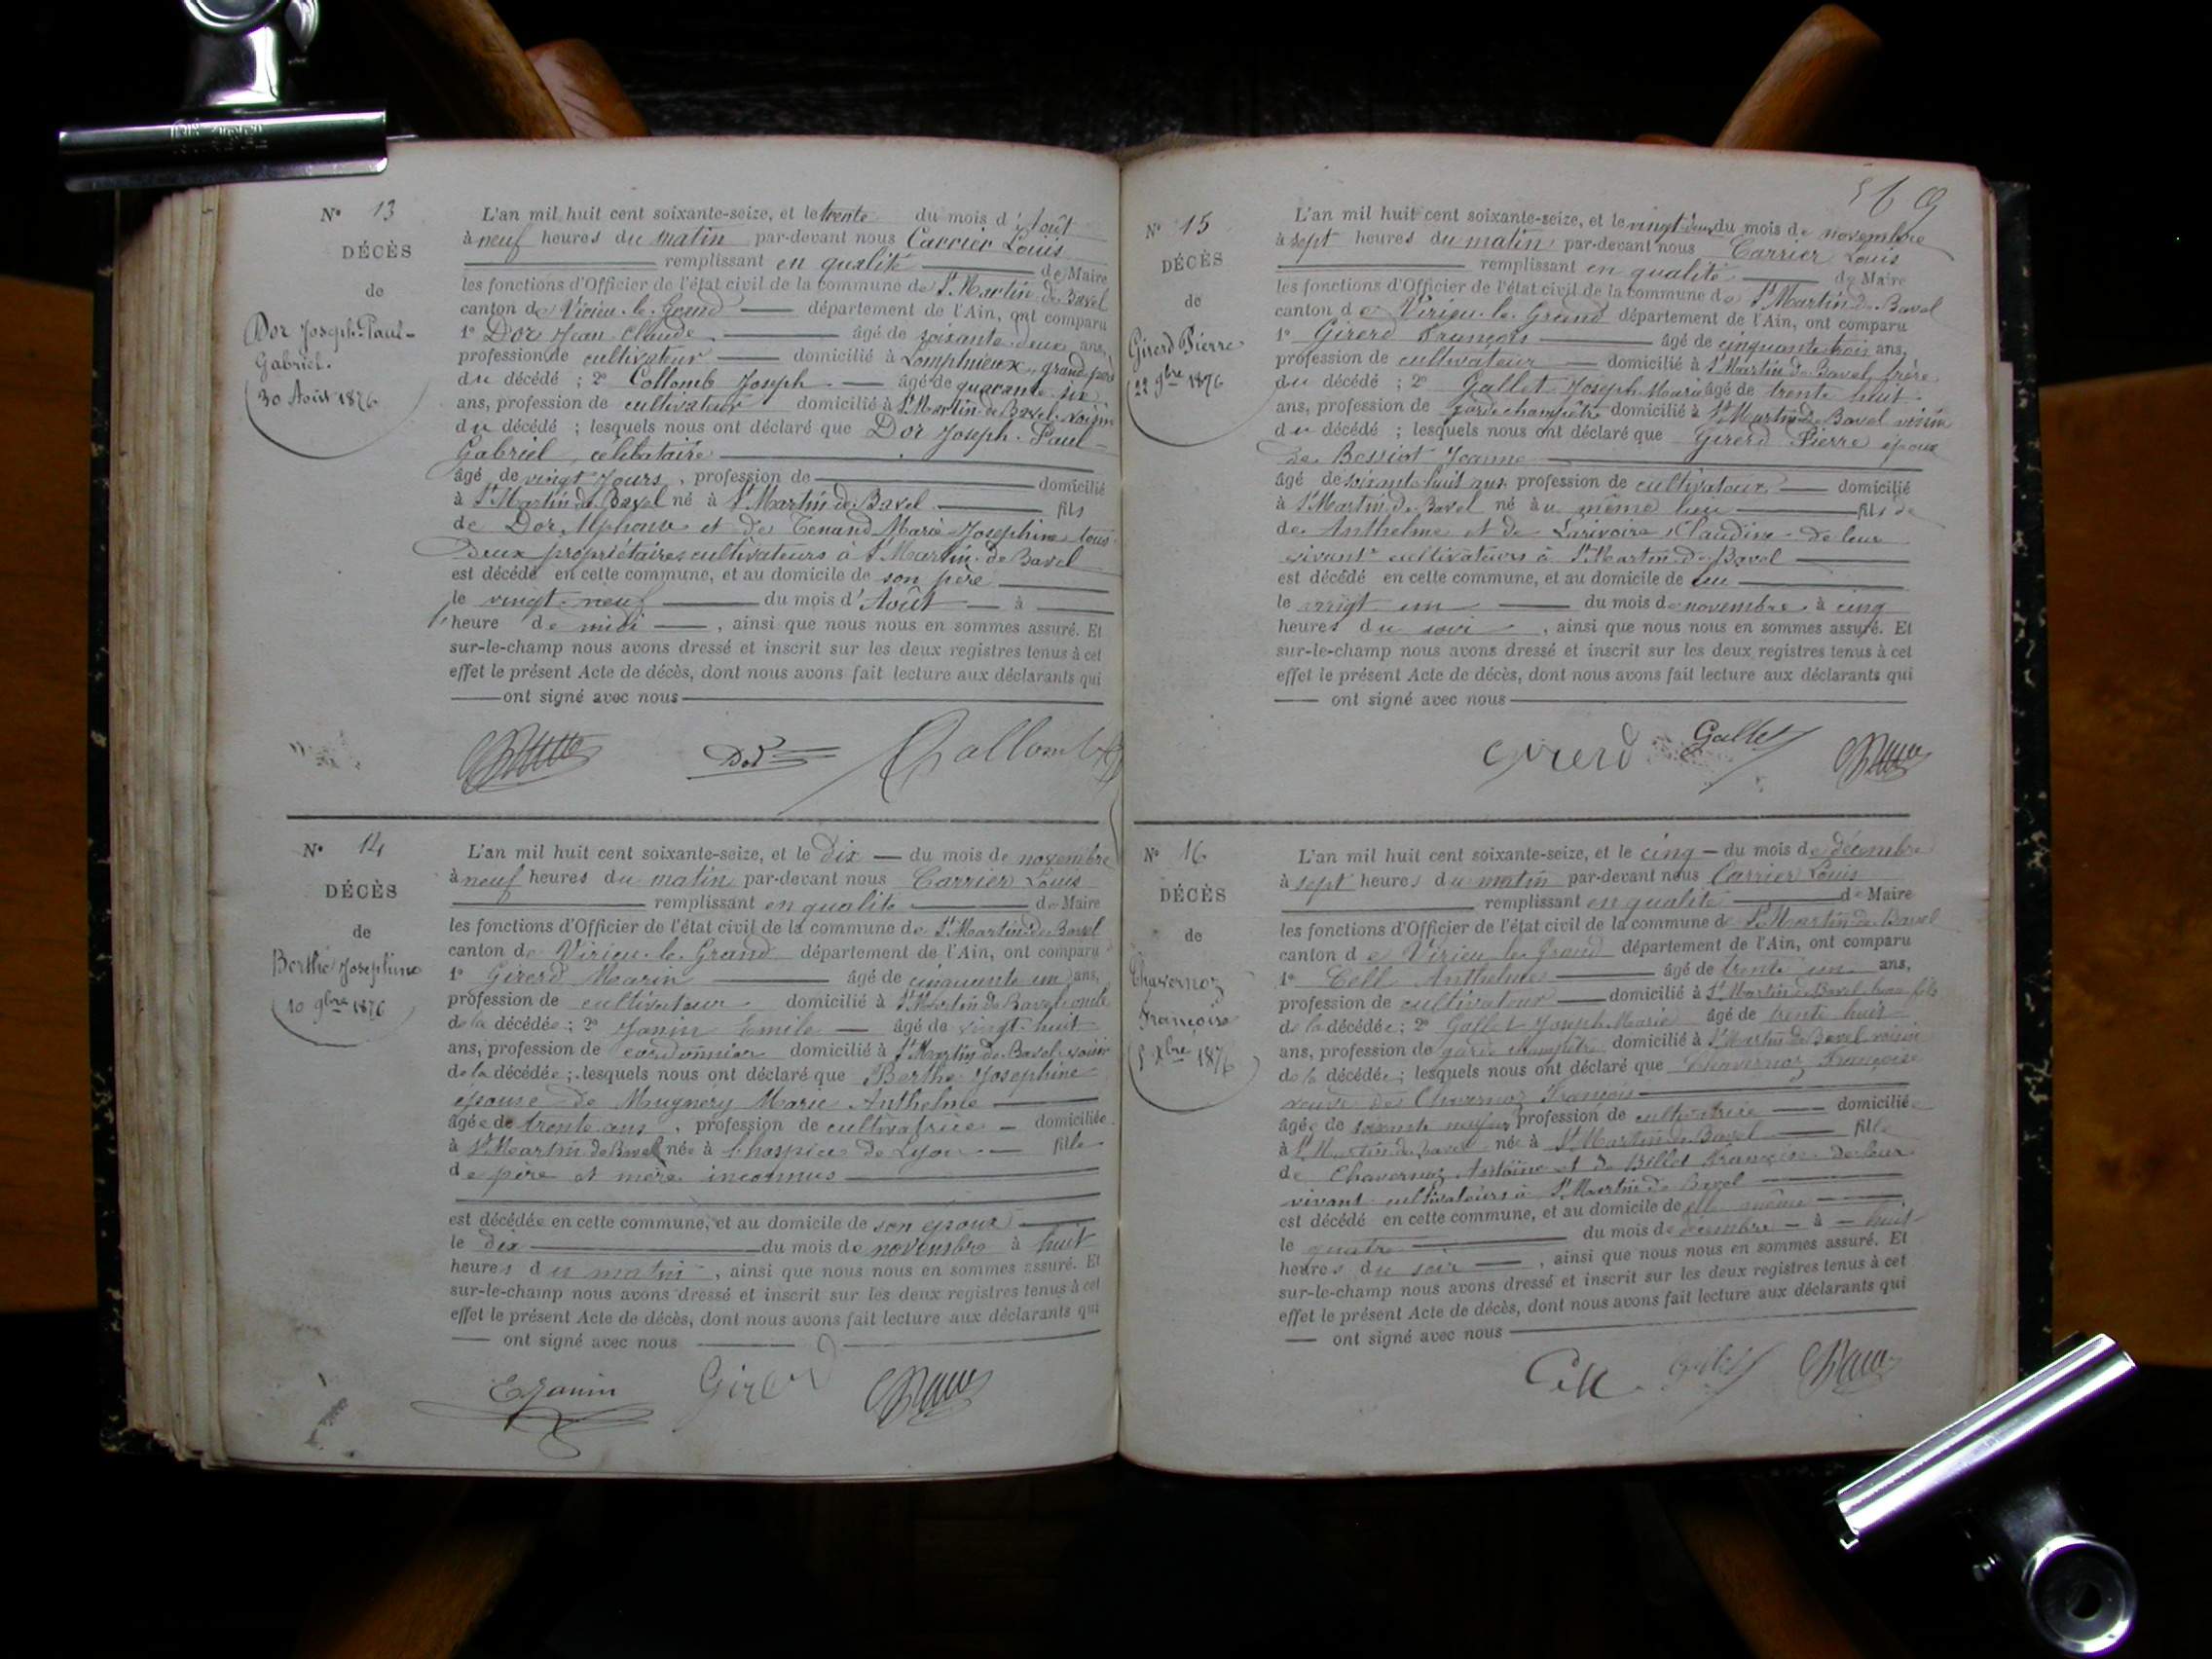 N° 13
DÉCÈS
de
Dor Joseph-Paul-
Gabriel.
30 Août 1876
L'an mil huit cent soixante-seize, et le trente du mois d'Août
à neuf heures du matin par-devant nous Carrier Louis
remplissant en qualité de Maire
les fonctions d'Officier de l'état civil de la commune de St Martin de Bavel
canton de Virieu-le-Grand département de l'Ain, ont comparu
1° Dor Jean Claude âgé de soixante deux ans,
profession de cultivateur domicilié à Lompnieux, grand-père
du décédé ; 2° Collomb Joseph âgé de quarante six
ans, profession de cultivateur domicilié à St Martin de Bavel voisin
du décédé ; lesquels nous ont déclaré que Dor Joseph-Paul-
Gabriel, célibataire
âgé de vingt jours, profession de domicilié
à St Martin de Bavel né à St Martin de Bavel fils
de Dor Alphonse et de Tenand Marie Joséphine tous
deux propriétaires cultivateurs à St Martin de Bavel
est décédé en cette commune, et au domicile de son père
le vingt-neuf du mois d'Août à
heure de midi, ainsi que nous nous en sommes assuré. Et
sur-le-champ nous avons dressé et inscrit sur les deux registres tenus à cet
effet le présent Acte de décès, dont nous avons fait lecture aux déclarants qui
ont signé avec nous
Dor Collomb
N° 14
DÉCÈS
de
Berthe Joséphine
10 9bre 1876
L'an mil huit cent soixante-seize, et le dix du mois de novembre
à neuf heures du matin par-devant nous Carrier Louis
remplissant en qualité de Maire
les fonctions d'Officier de l'état civil de la commune de St Martin de Bavel
canton de Virieu-le-Grand département de l'Ain, ont comparu
1° Girerd Marin âgé de cinquante un ans,
profession de cultivateur domicilié à St Martin de Bavel oncle
de la décédée ; 2° Janin Emile âgé de vingt-huit
ans, profession de cordonnier domicilié à St Martin de Bavel voisin
de la décédée ; lesquels nous ont déclaré que Berthe Joséphine
épouse de Mugnery Marie Anthelme
âgée de trente ans, profession de cultivatrice domiciliée
à St Martin de Bavel née à l'hospice de Lyon fille
de père et mère inconnus
est décédée en cette commune, et au domicile de son époux
le dix du mois de novembre à huit
heures du matin, ainsi que nous nous en sommes assuré. Et
sur-le-champ nous avons dressé et inscrit sur les deux registres tenus à cet
effet le présent Acte de décès, dont nous avons fait lecture aux déclarants qui
ont signé avec nous
E Janin Girerd
569
N° 15
DÉCÈS
de
Girerd Pierre
22 9bre 1876
L'an mil huit cent soixante-seize, et le vingt-deux du mois de novembre
à sept heures du matin par-devant nous Carrier Louis
remplissant en qualité de Maire
les fonctions d'Officier de l'état civil de la commune de St Martin de Bavel
canton de Virieu-le-Grand département de l'Ain, ont comparu
1° Girerd François âgé de cinquante trois ans,
profession de cultivateur domicilié à St Martin de Bavel, frère
du décédé ; 2° Gallet Joseph Marie âgé de trente huit
ans, profession de garde champêtre domicilié à St Martin de Bavel voisin
du décédé ; lesquels nous ont déclaré que Girerd Pierre époux
de Jeanne
âgé de soixante huit ans profession de cultivateur domicilié
à St Martin de Bavel né au même lieu fils de
de Anthelme et de Larivoire Claudine de leur
vivant cultivateurs à St Martin de Bavel
est décédé en cette commune, et au domicile de lui
le vingt un du mois de novembre à cinq
heures du soir, ainsi que nous nous en sommes assuré. Et
sur-le-champ nous avons dressé et inscrit sur les deux registres tenus à cet
effet le présent Acte de décès, dont nous avons fait lecture aux déclarants qui
ont signé avec nous
Girerd Gallet
N° 16
DÉCÈS
de
Chavernoz
Françoise
5 Xbre 1876
L'an mil huit cent soixante-seize, et le cinq du mois de décembre
à sept heures du matin par-devant nous Carrier Louis
remplissant en qualité de Maire
les fonctions d'Officier de l'état civil de la commune de St Martin de Bavel
canton de Virieu le Grand département de l'Ain, ont comparu
1° Cell Anthelme âgé de trente un ans,
profession de cultivateur domicilié à St Martin de Bavel beau-fils
de la décédée ; 2° Gallet Joseph Marie âgé de trente huit
ans, profession de garde champêtre domicilié à St Martin de Bavel voisin
de la décédée ; lesquels nous ont déclaré que Chavernoz Françoise
veuve de Chavernoz François
âgée de soixante neuf ans profession de cultivatrice domiciliée
à St Martin de Bavel née à St Martin de Bavel fille
de Chavernoz Antoine et de Billet Françoise de leur
vivant cultivateurs à St Martin de Bavel
est décédé en cette commune, et au domicile de elle même
le quatre du mois de décembre à huit
heures du soir, ainsi que nous nous en sommes assuré. Et
sur-le-champ nous avons dressé et inscrit sur les deux registres tenus à cet
effet le présent Acte de décès, dont nous avons fait lecture aux déclarants qui
ont signé avec nous
Cell Gallet